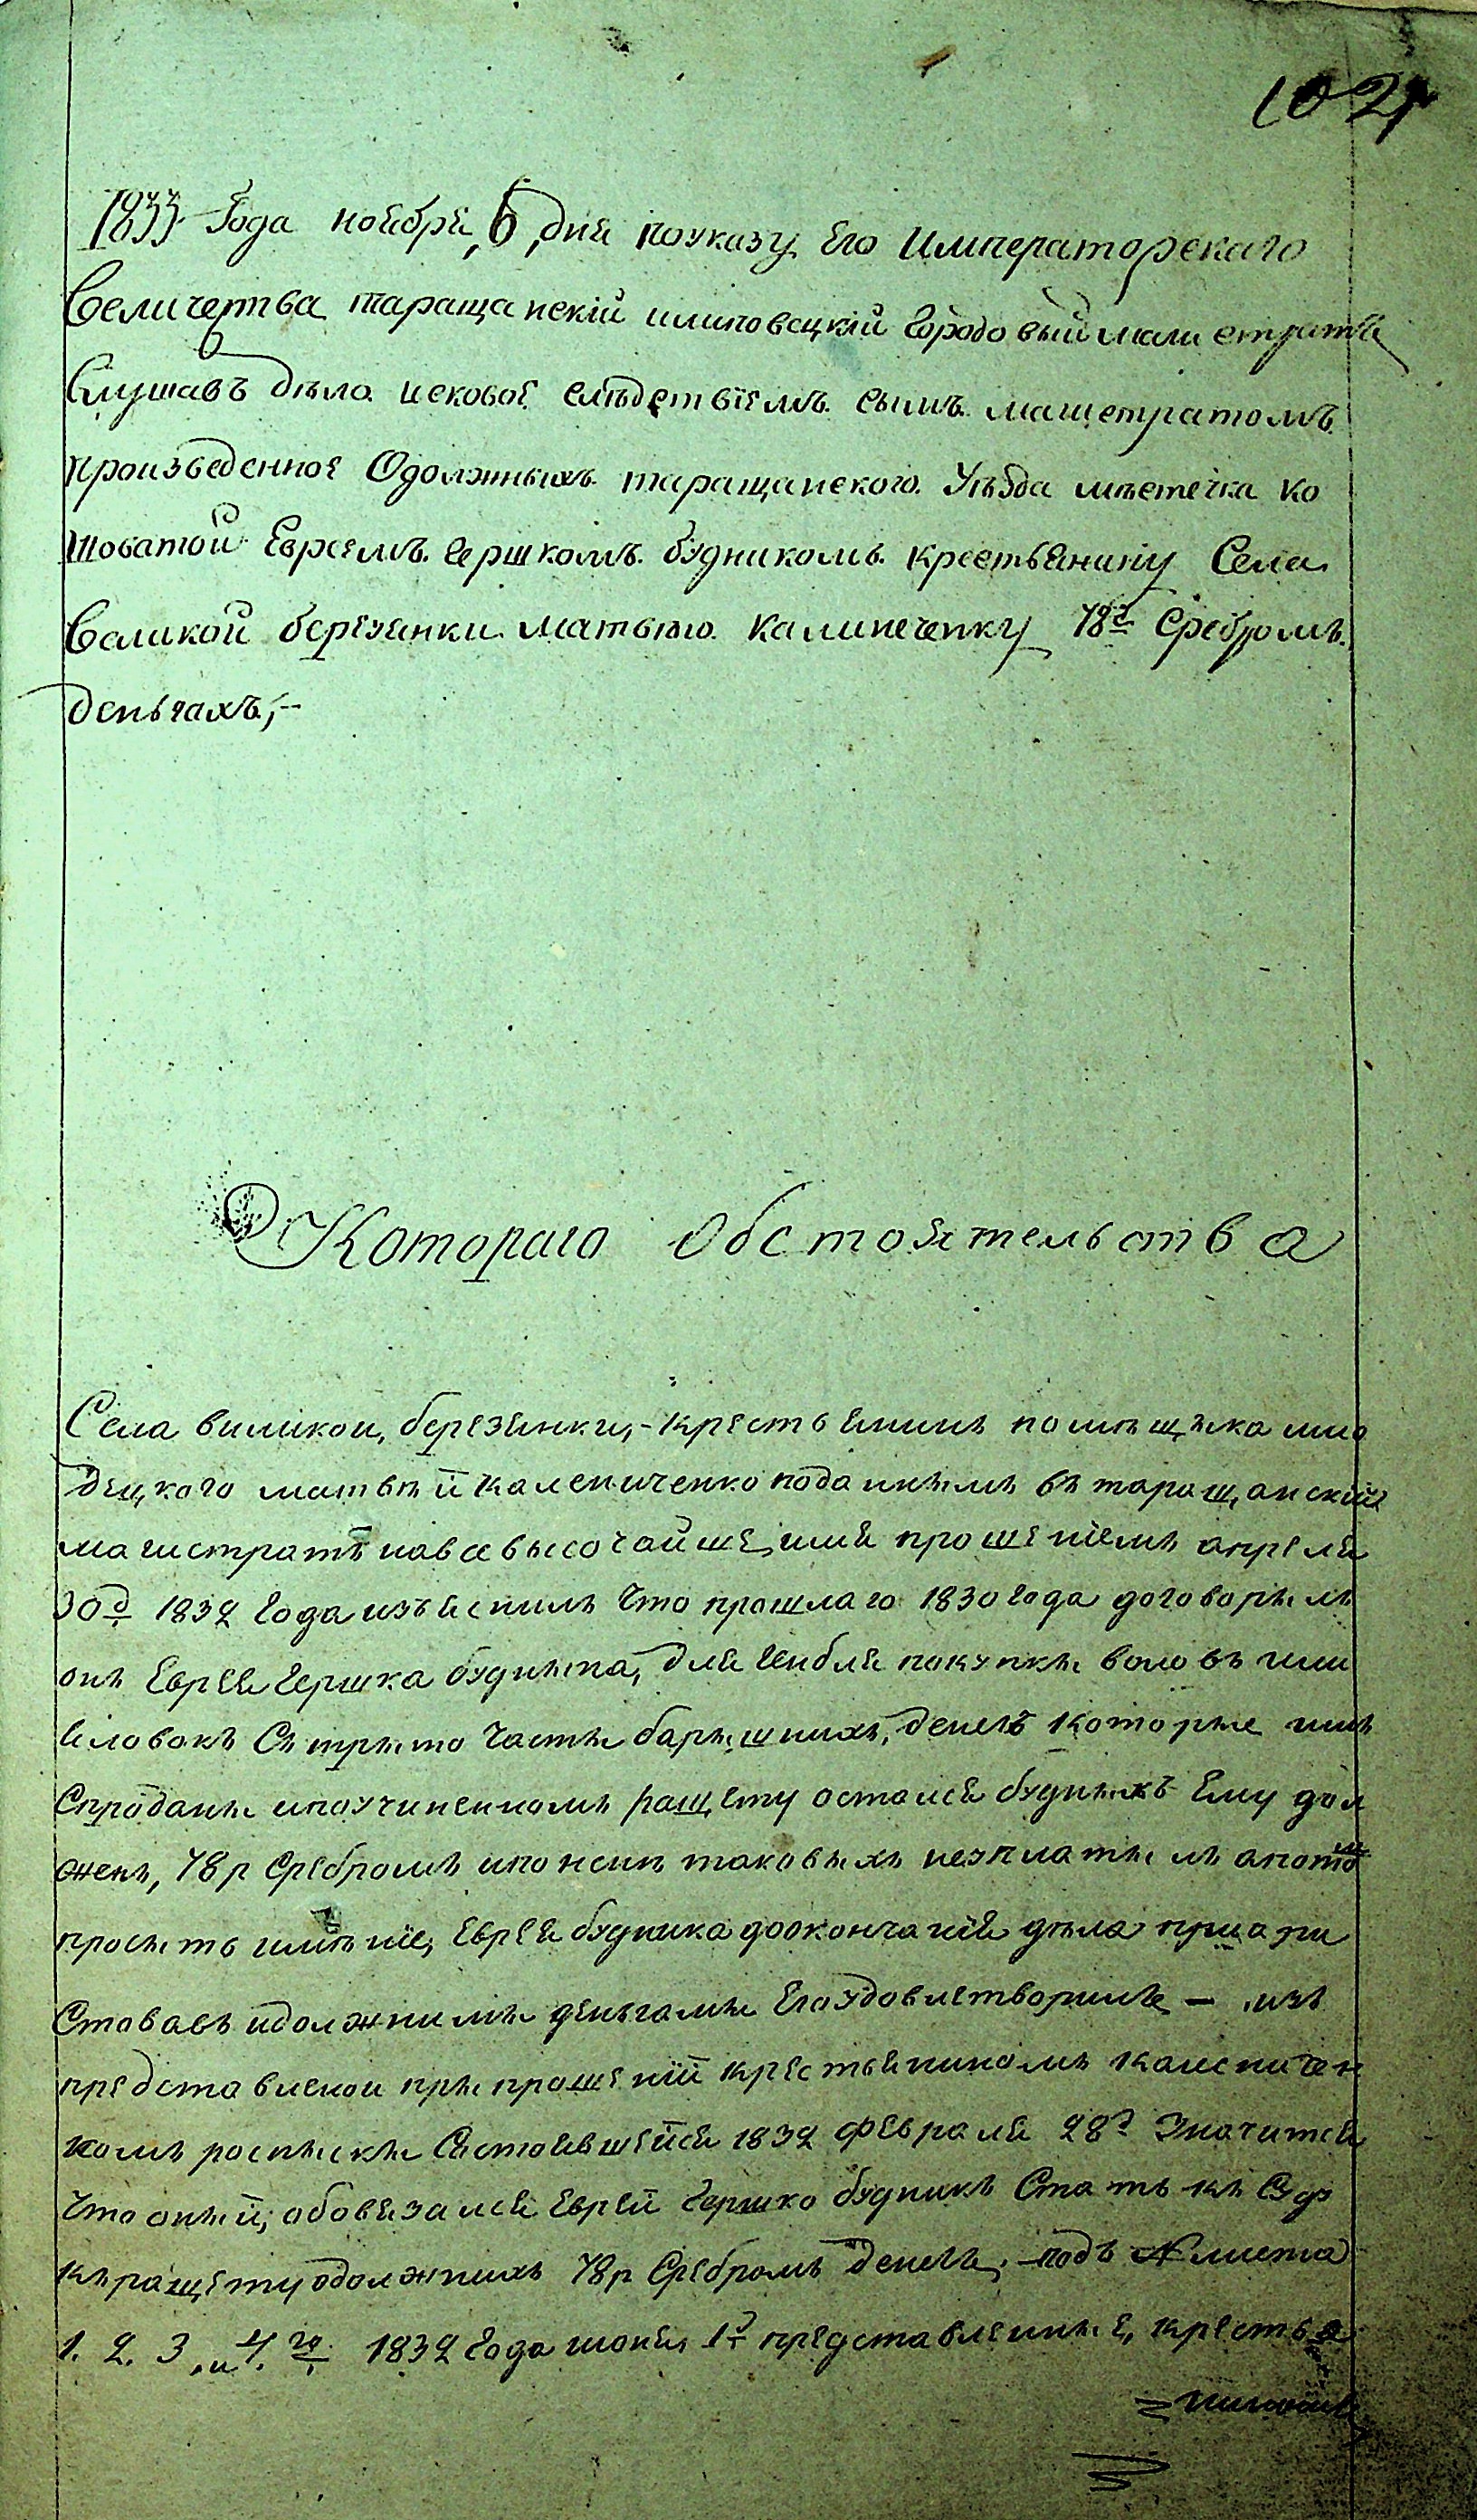 102
1833 Года ноября, 6, дня по указу Его Императорскаго
Величества таращанский и липовецкий Городовый магистратъ
Слушавъ дѣло исковое слѣдствіемъ сымъ магистратомъ
произведенное О должныхъ таращанского Уѣзда мѣстечка ко
шоватой Евреемъ Гершкомъ будникомъ крестьянину Села
Великой березянки Матвею Калиниченку 78 р Сребромъ
деньгахъ,-
Котораго Обстоятельства
Села виликои, березянки,- крестьянинъ помѣщика
децкого матвѣй калениченко поданнымъ въ таращанский
магистратъ на высочайшее имя прошениемъ апреля
30 д 1832 Года изъяснилъ Что прошлаго 1830 года договорилъ
онъ Еврея Гершка будника, для покупки воловъ или
яловокъ Съ трѣто Части барышнихъ, денегъ которые имъ
Спроданы и поучиненномъ ращету остался будникъ Ему дол
женъ, 78 р Сребромъ таковыхъ неуплатилъ а потому
просить имѣніе, Еврея будника до окончанія дѣла
Стававъ и должными деньгами Его удовлетворить — изъ
представленои при прошеніи крестьяниномъ калениченк
комъ росписки Состоявшейся 1832 февраля 28 д Значится
Что оный, обовязался Еврей Гершко будникъ Стать къ Суду
къ ращету о должнихъ 78 р Сребромъ денегъ, - подъ № листа
1. 2. 3, и 4. го 1832 Года июня, 1 д представленные, крестья